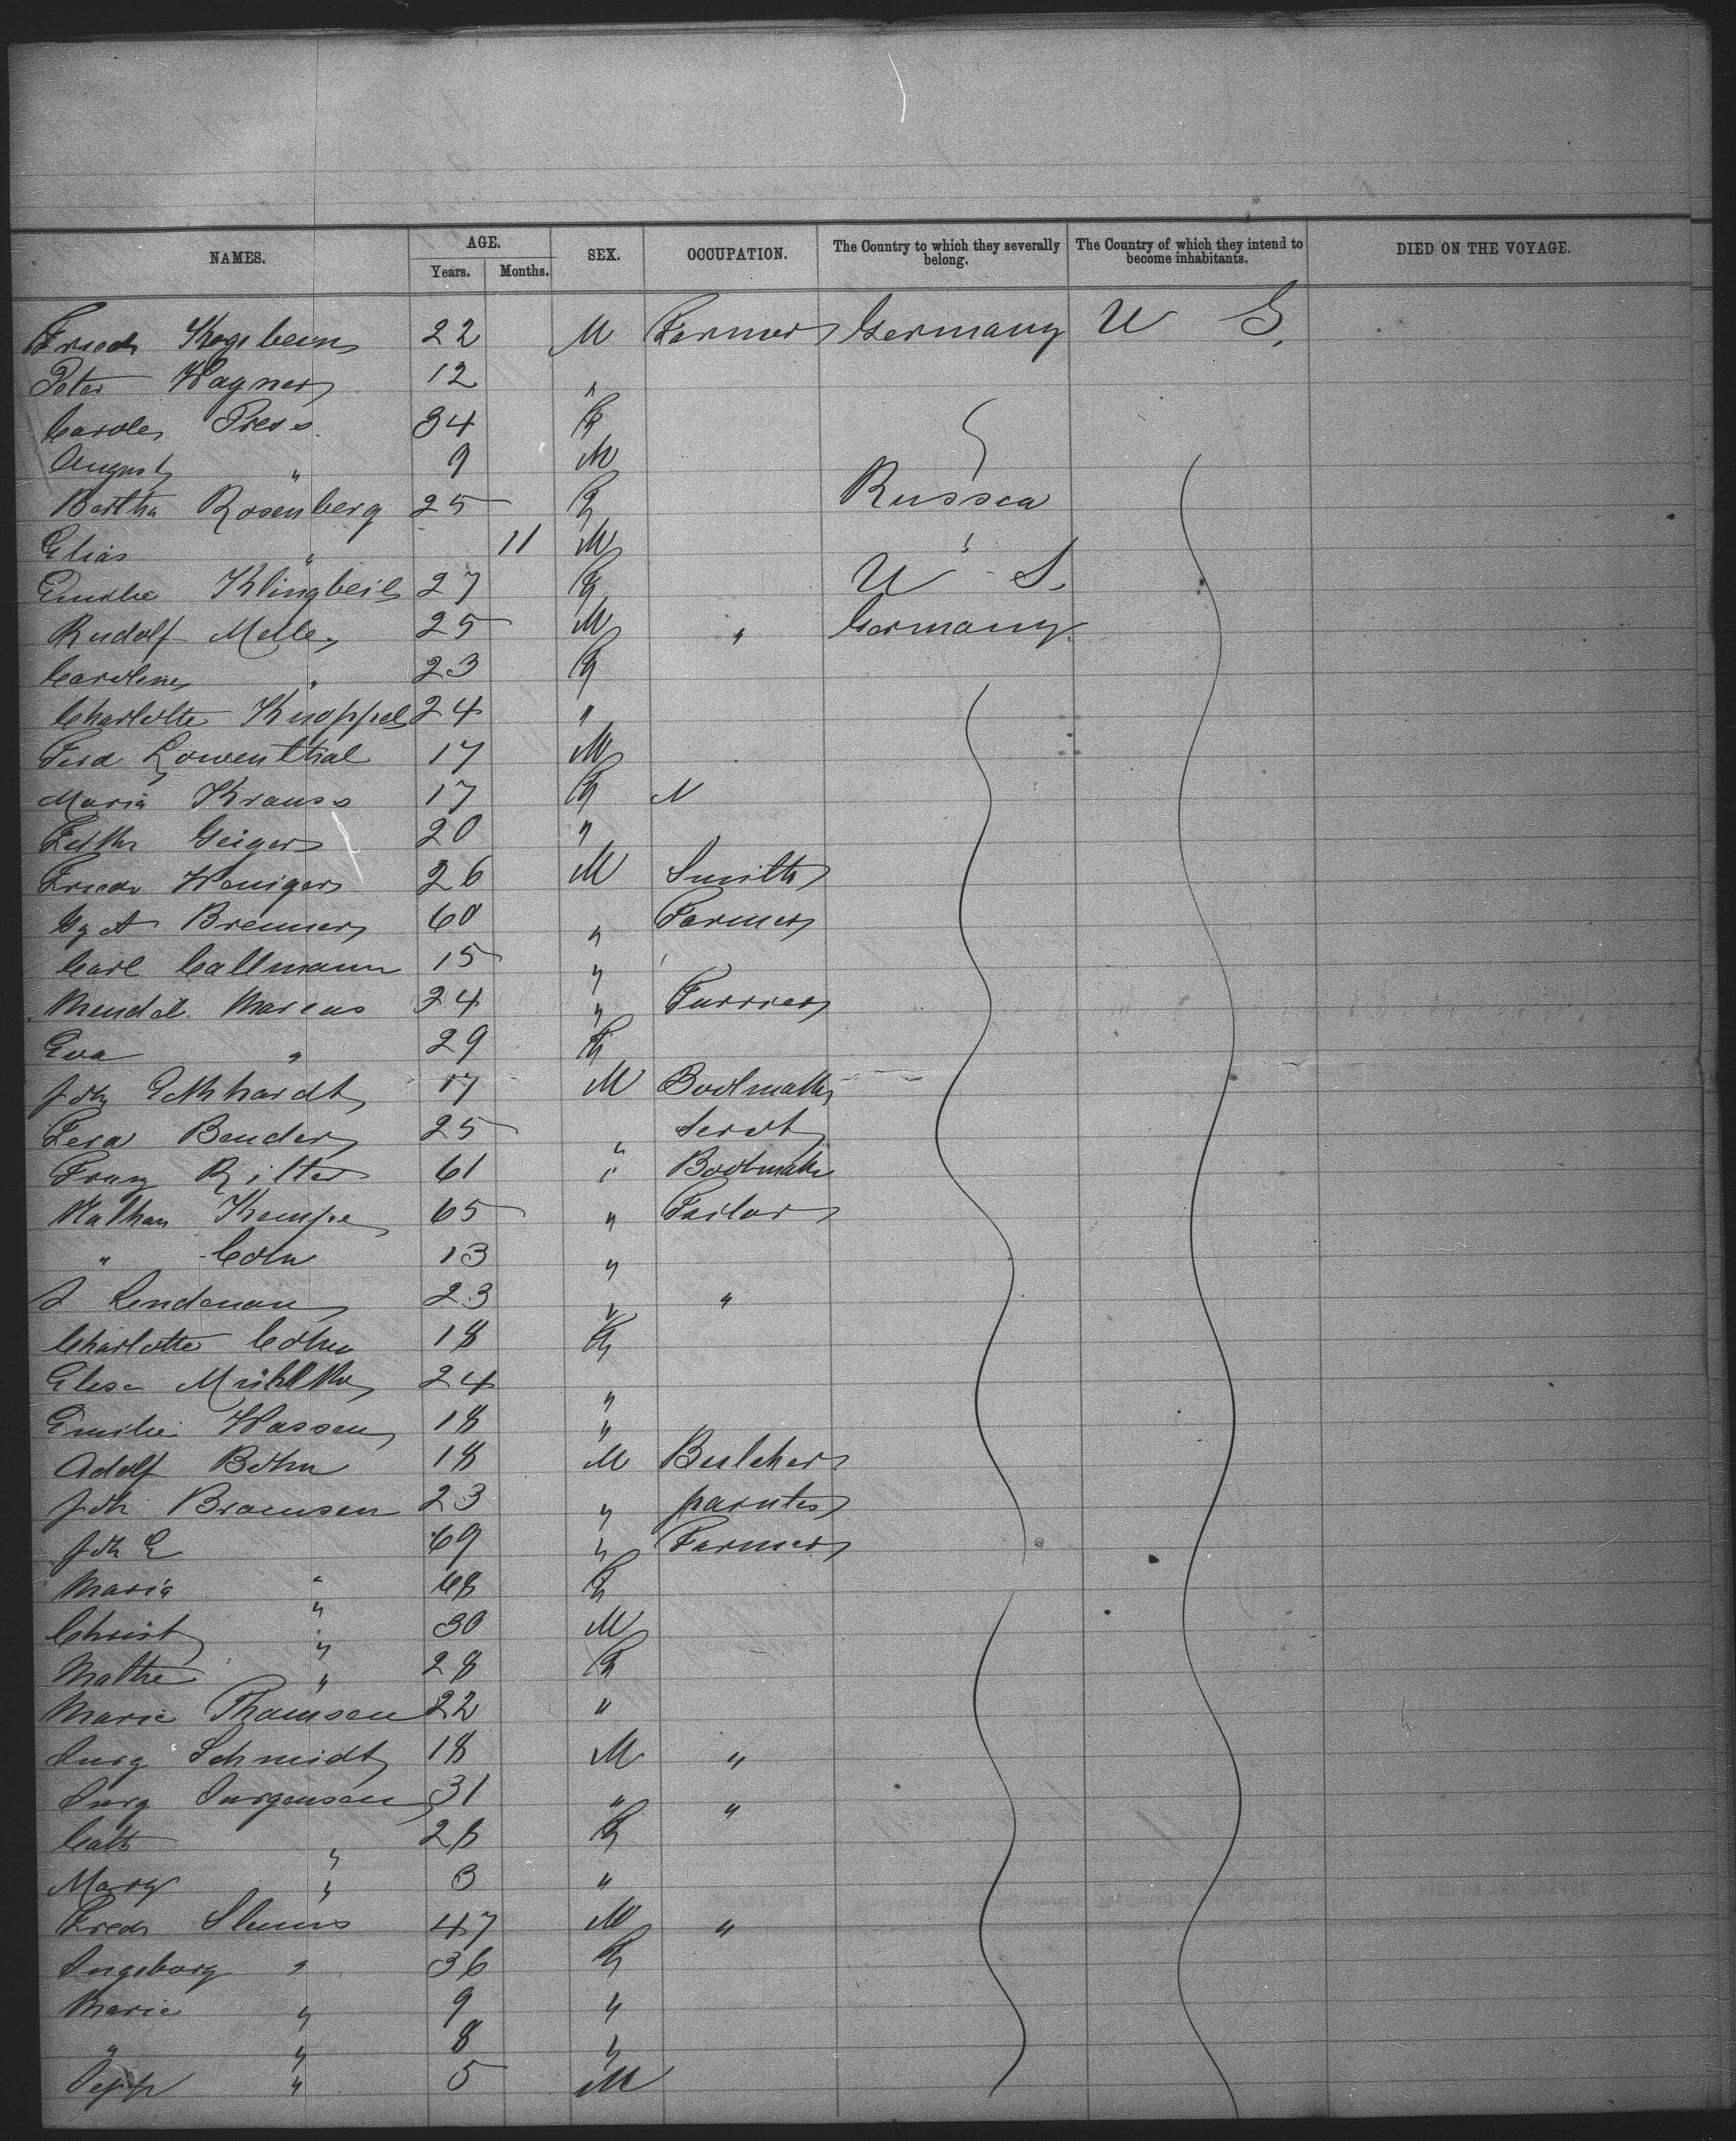 NAMES. AGE. SEX. OCCUPATION. The Country to which they severally belong. The Country of which they intend to become inhabitants. DIED ON THE VOYAGE.
Years. Months.
Friedr 22 M Farmer Germany U S.
Peter Wagner 12 "
Carole Press 34 F
August " 9 M
Bertha Rosenberg 25 F Russia
Elias " 11 M
Emilie Klingbeil 27 F U S.
Rudolf Melle 25 M " Germany
Caroline " 23 F
Charlotte Knoppel 24 "
Ferd Lowenthal 17 M
Maria Krauss 17 F
Geiger 20 "
Friedr Weniger 26 M Smith
Brenner 60 " Farmer
Carl Callmann 15 "
Mendel Marcus 24 " Furrier
Eva " 29 F
Joh Eckhardt 17 M Bootmak
Ferd Bender 25 " Servt
Franz Ritter 61 " Bootmak
Nathan Kempe 65 " Tailor
" Cohn 13 "
J Lindenau 23 " "
Charlotte Cohn 18 F
Elise 24 "
Emilie Wassen 18 "
Adolf Böhm 18 M Butcher
Joh Bramsen 23 "
Joh E 69 " Farmer
Maria " 68 F
Christ " 30 M
" 28 F
Marie Thomsen 22 "
Jurg Schmidt 18 M "
Jurg Jurgensen 31 " "
Cath " 28 F
Mary " 3 "
Fredr 47 M "
Ingeborg " 36 F
Marie " 9 "
" " 8 "
Jepp " 5 M